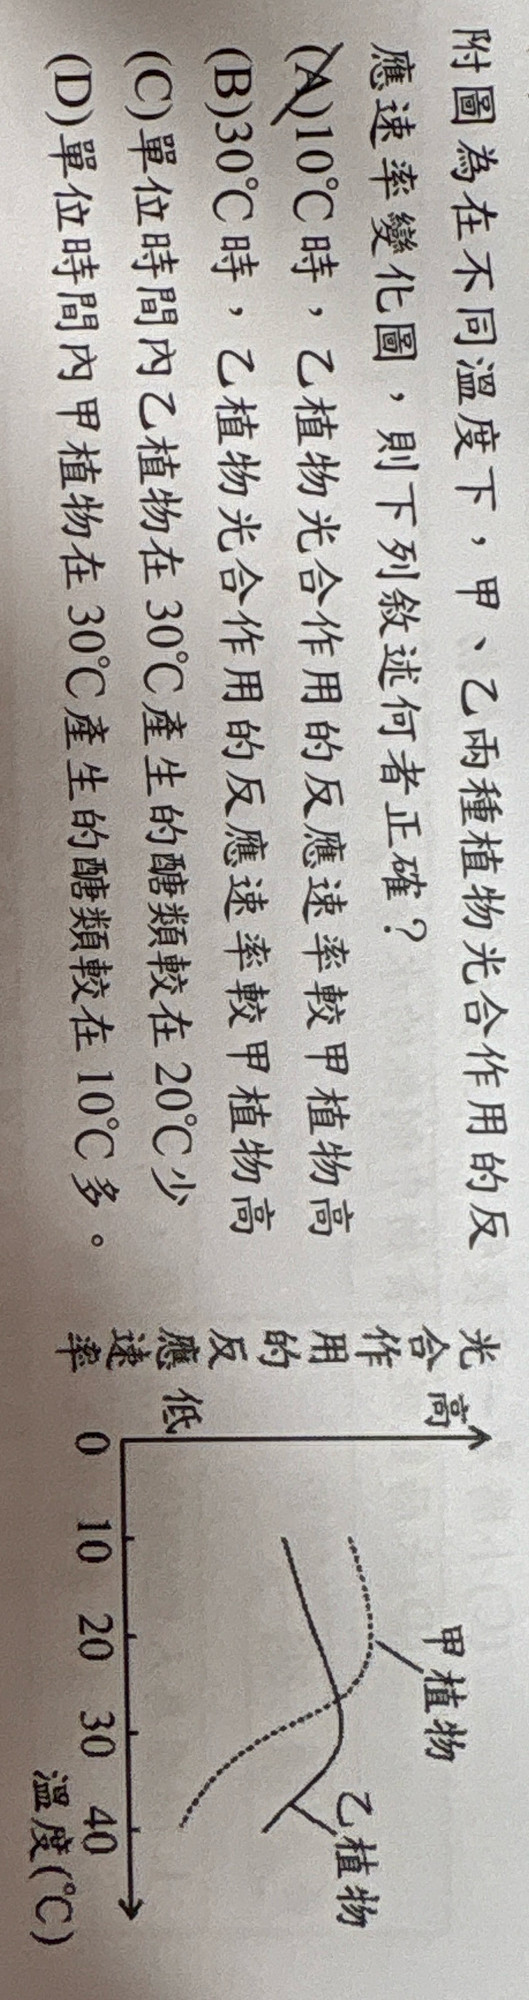 附圖為在不同溫度下，甲、乙兩種植物光合作用的反
應速率變化圖，則下列敘述何者正確？
(A)10℃時，乙植物光合作用的反應速率較甲植物高
(B)30℃時，乙植物光合作用的反應速率較甲植物高
(C)單位時間內乙植物在30℃產生的醣類較在20℃少
(D)單位時間內甲植物在30℃產生的醣類較在10℃多。
光合作用的反應速率
高
低
甲植物
乙植物
0 10 20 30 40
溫度(℃)